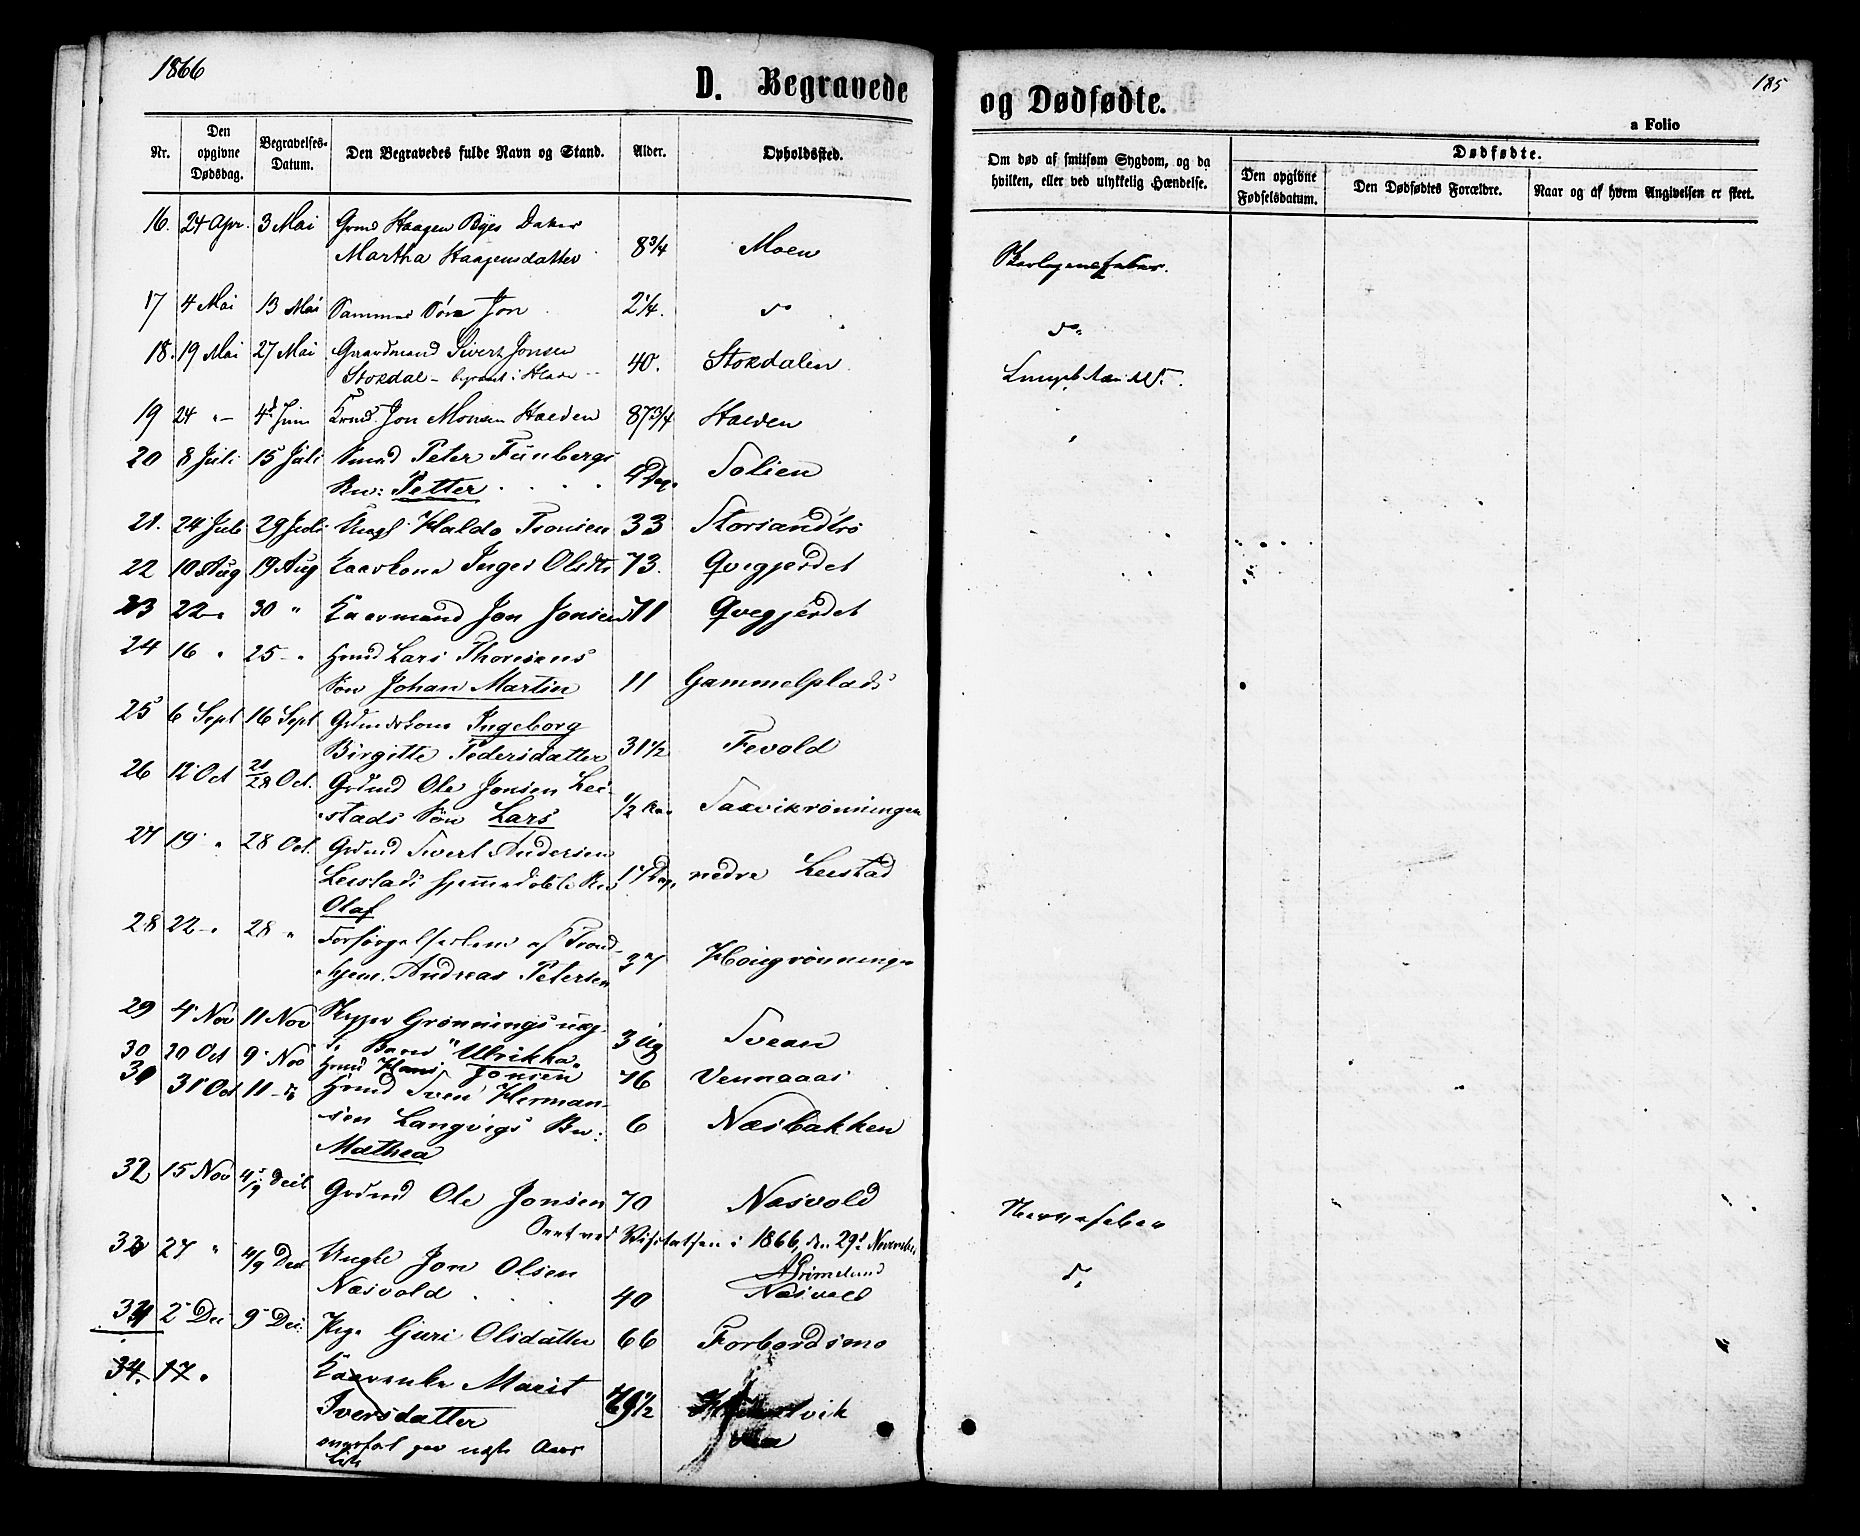 1866
185
D. Begravede
og Dødfødte.
a Folio
Nr.
Den opgivne Dødsdag.
Begravelses-Datum.
Den Begravedes fulde Navn og Stand.
Alder.
Opholdssted.
Om død af smitsom Sygdom, og da hvilken, eller ved ulykkelig Hændelse.
Dødfødte.
Den opgivne Fødselsdatum.
Den Dødfødtes Forældre.
Naar og af hvem Angivelsen er skeet.
16. 24 Apr. 3 Mai Grmd Haagen Byes Datter
Martha Haagensdatter 8 3/4 Moen Skarlagensfeber.
17 4 Mai 13 Mai Sammes Søn Jon 2 1/4. do do
18. 19 Mai 27 Mai Gaardmand Sivert Jonsen
Stokdal - begravet i 40. Stokdalen
19 24 "- 4de Juni Jon Monsen Halden 87 3/4 Halden
20 8 Juli 15 Juli Smed Peter Funbergs
Bn: Petter 4 Dag. Solien
21. 24 Juli 29 Juli Ungk Haldo Tronsen 33 Storsandrø
22 10 Aug 19 Aug Kaarkone Inger Olsdtr 73. Qvegjerdet
23 22 - " 30 " Kaarmand Jon Jonsen 71 Qvegjerdet
24 16 " 25 - " Hmd Lars Thoresens
Søn Johan Martin 11 Gammelplads
25 6 Sept 16 Sept Grdmdskone Ingeborg
Birgitte Pedersdatter 31 1/2 Fevold
26 12 Oct 21/28 Oct. Grdmd Ole Jonsen Lei-
stads Søn Lars 1/2 Aar Saxvikrønningen
27 19 " 28 Oct. Grdmd Sivert Andersen
Leistads hjemmedøbte Bn
Olaf 17 Dag. nedre Leistad
28 22 - " 28 " Forsørgelseslem af Trond-
hjem. Andreas Petersen 37 Haugrønning
29 4 Nov 11 Nov Grønnings
Barn "Ulrikka" 3 Ug Svean
30 30 Oct 9 Nov Hmd Hans Jonsen 76 Vennaaas
31 31 Oct 11 - Hmd Sven Herman-
sen Langvigs Bn:
Mathea 6 Næsbakken
32 15 Nov Grdmd Ole Jonsen 70 Næsvold Nervefeber
Seet ved Visitatsen i 1866, den 29de November
AGrimelund
33 27 " 4/9 Dec Ungk Jon Olsen
Næsvold 40 Næsvold do
34 2 Dec 9 Dec. Pige Guri Olsdatter 66 Forbordsmo
34. 17 " Kaarenke Marit
Iversdatter 79 1/2
overført paa næste Aars